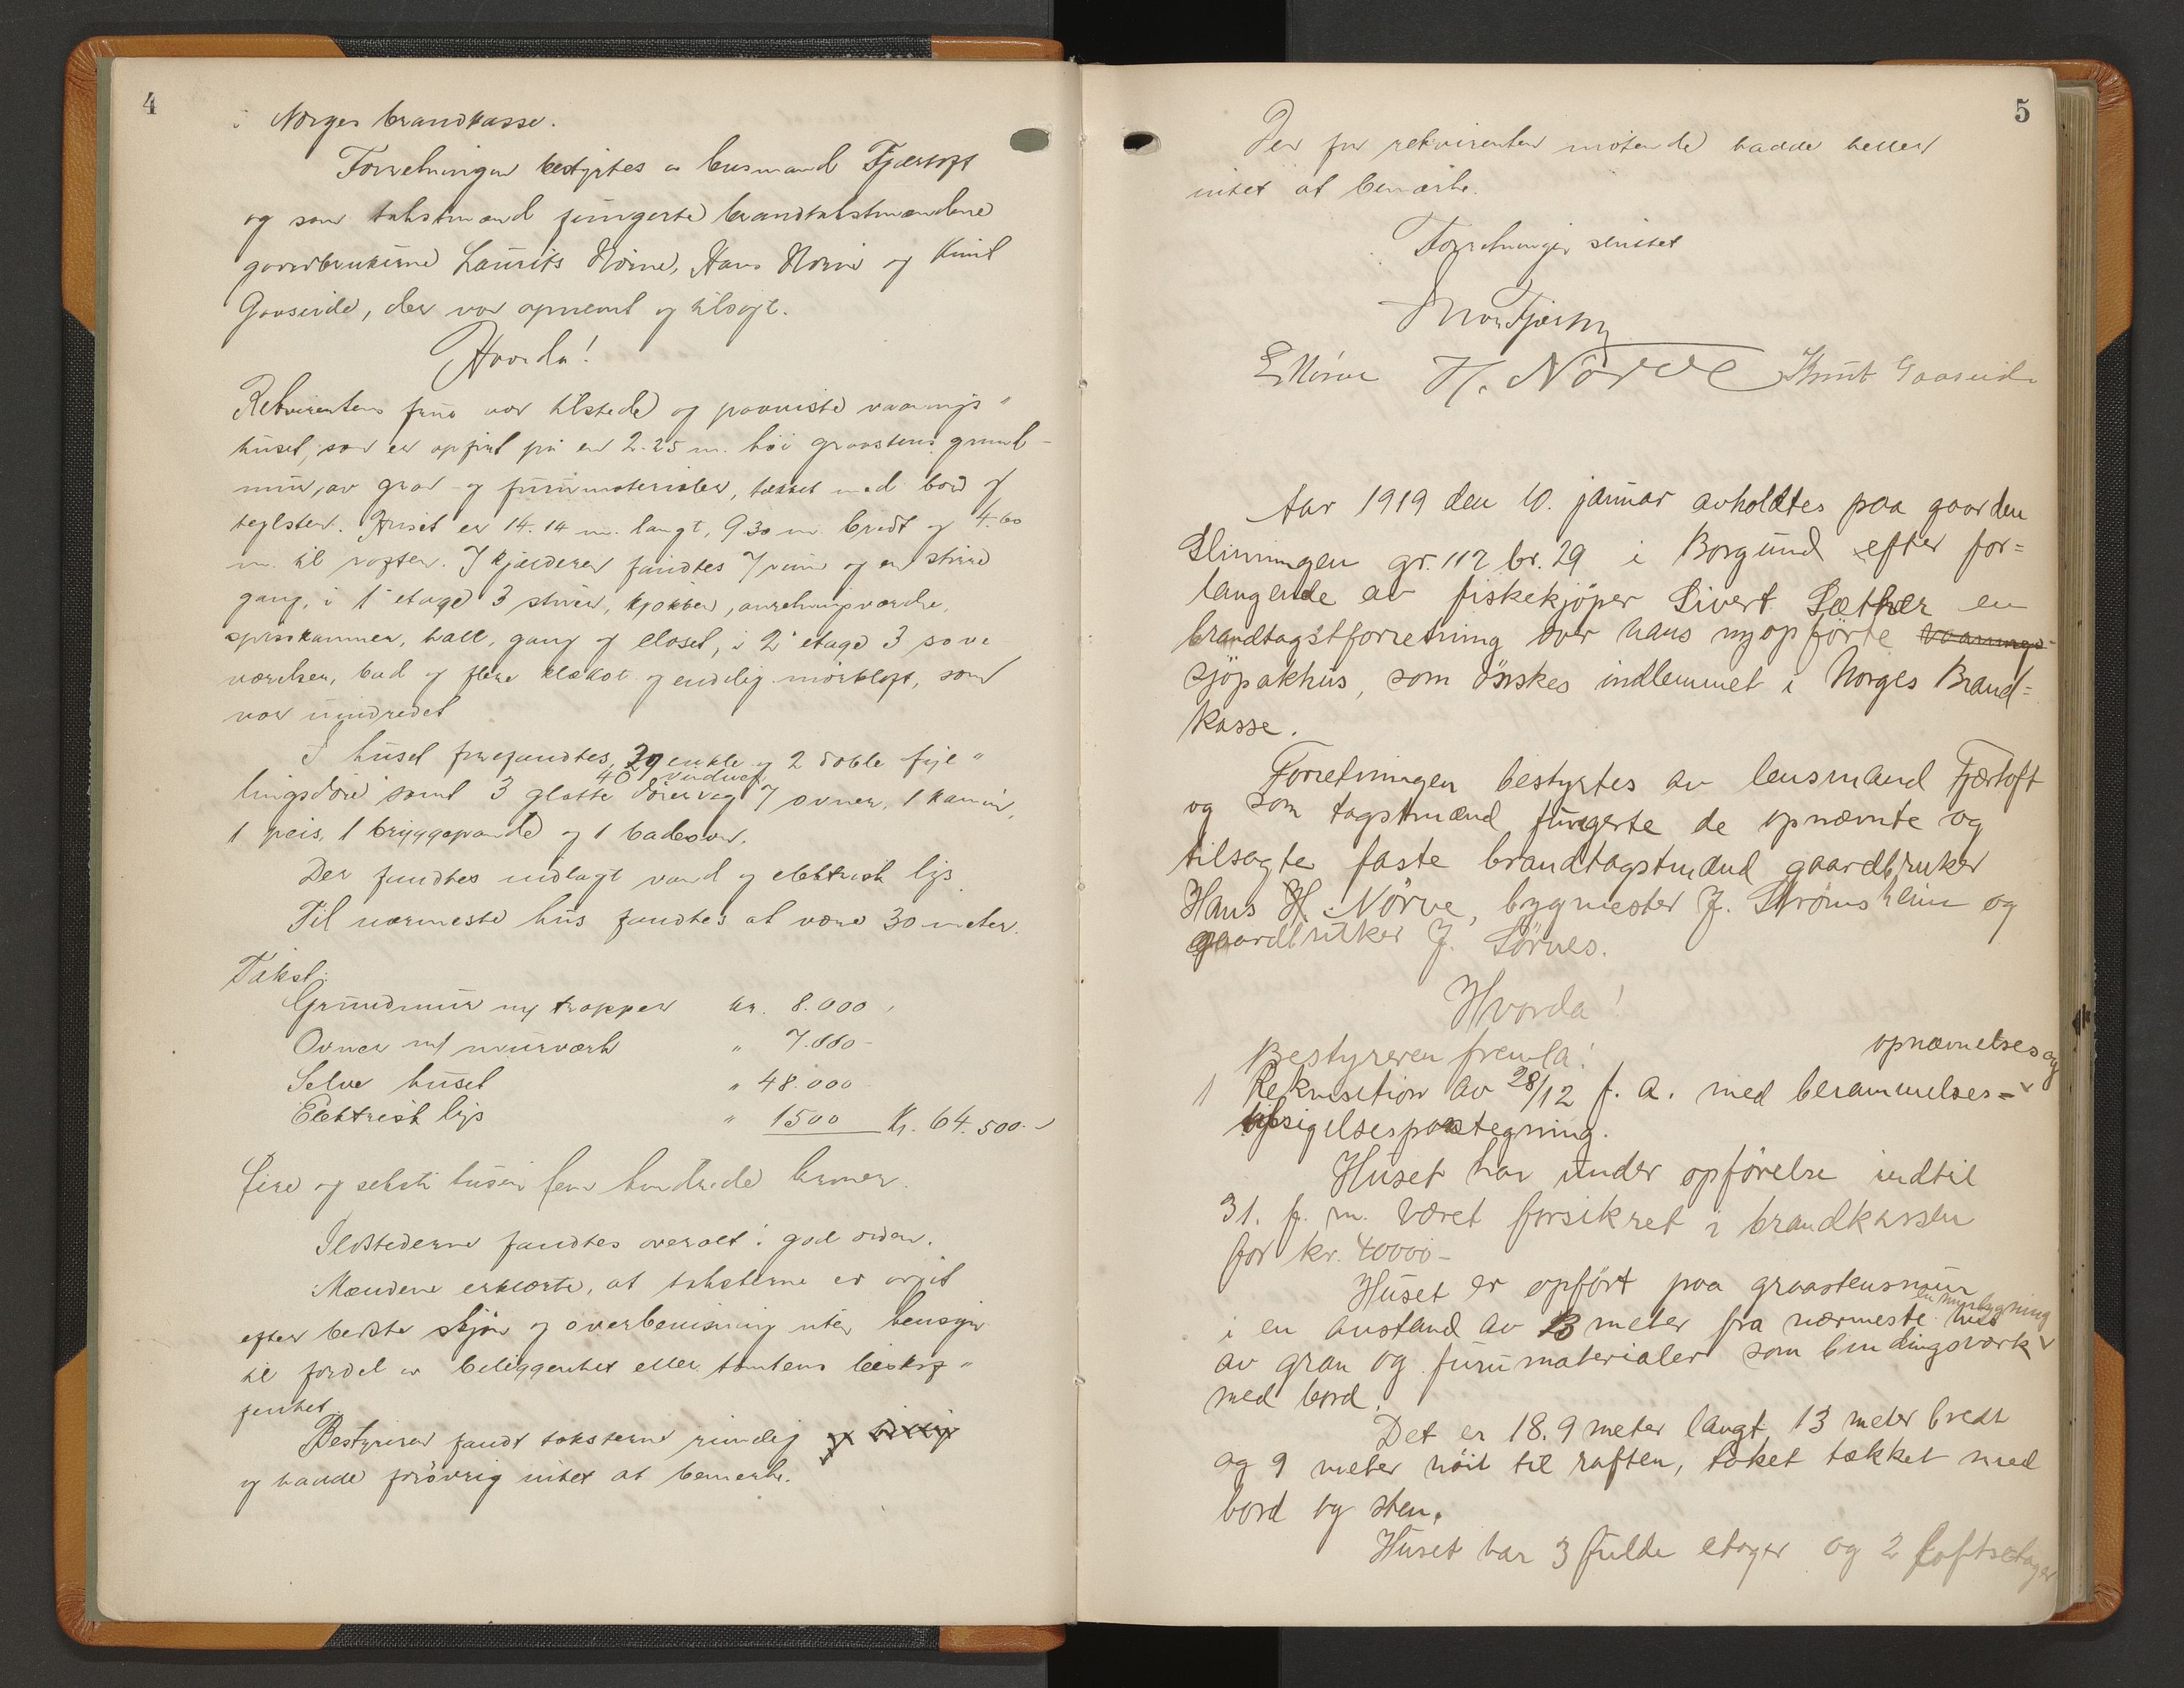 4
i Norges brandkasse.
Forretningen bestyrtes av lensmand Fjærtoft
og som takstmænd fungerte brandtakstmændene
gaardbrukerne Laurits Nørve, Hans Nørve og Knut
Gaaseide, der var opnævnt og tilsagt.
Hvorda!
Rekvirentens frue var tilstede og paaviste vaanings"
huset, som er opført på en 2.25 m. høi graastens grund-
mur, av gran- og furumaterialer, tækket med bord og
teglsten. Huset er 14.14 m. langt, 9.30 m. bredt og 4.60
m. til raften. I kjælderen fandtes 7 rum og en større
gang, i 1' etage 3 stuer, kjøkken, anretningsværelse,
spisekammer, hall, gang og closet, i 2' etage 3 sove
værelser, bad og flere klækot og endelig mørkloft, som
var uindredet
I huset forefandtes 29 enkle og 2 doble fyl"
40 vinduer
lingsdøre samt 3 glatte dører og 7 ovner, 1 kamin,
1 peis, 1 bryggepande og 1 badeovn.
Der fandtes indlagt vand og elektrisk lys.
Til nærmeste hus fandtes at være 30 meter.
Takst:
Grundmur m/ trapper kr. 8.000,
Ovner m/ murværk " 7.000-
Selve huset " 48.000
Elektrisk lys " 1500 Kr. 64.500.-
fire og seksti tusen fem hundrede kroner.
Ildstederne fandtes overalt i god orden.
Mændene erklærte, at taksterne er avgit
efter bedste skjøn og overbevisning uten hensyn
til fordel av beliggenhet eller tomtens beskaf"
fenhet.
Bestyreren fandt taksterne rimelig og
og hadde forøvrig intet at bemerke.
5
Den for rekvirenten møtende hadde heller
intet at bemærke.
Forretningen sluttet
Fjærtoft
L Nörve H. Nörve Knut Gaaseide
Aar 1919 den 10. januar avholdtes paa gaarden
Slinningen gr. 112 br. 29 i Borgund efter for=
langende av fiskekjöper Sivert Sæther en
brandtagstforretning over hans nyopförte vaanings-
sjöpakhus, som önskes indlemmet i Norges Brand=
kasse.
Forretningen bestyrtes av lensmand Fjærtoft
og som tagstmænd fungerte de opnævnte og
tilsagte faste brandtagstmænd gaardbruker
Hans H. Nörve, bygmester J. Strömsheim og
gaardbruker J. Sörnes.
Hvorda!
Bestyreren fremla:
opnævnelses og
1 Rekvisition av 28/12 f. a. med berammelses=
tilsigelsespaategning.
Huset har under opförelse indtil
31. f. m. været forsikret i brandkassen
for kr. 40000-
Huset er opfört paa graastensmur
en murbygning
i en avstand av 13 meter fra nærmeste hus
av gran og furumaterialer som bindingsværk
med bord.
Det er 18.9 meter langt, 13 meter bredt
og 9 meter höit til raften, taket tækket med
bord og sten.
Huset har 3 fulde etager og 2 loftsetager